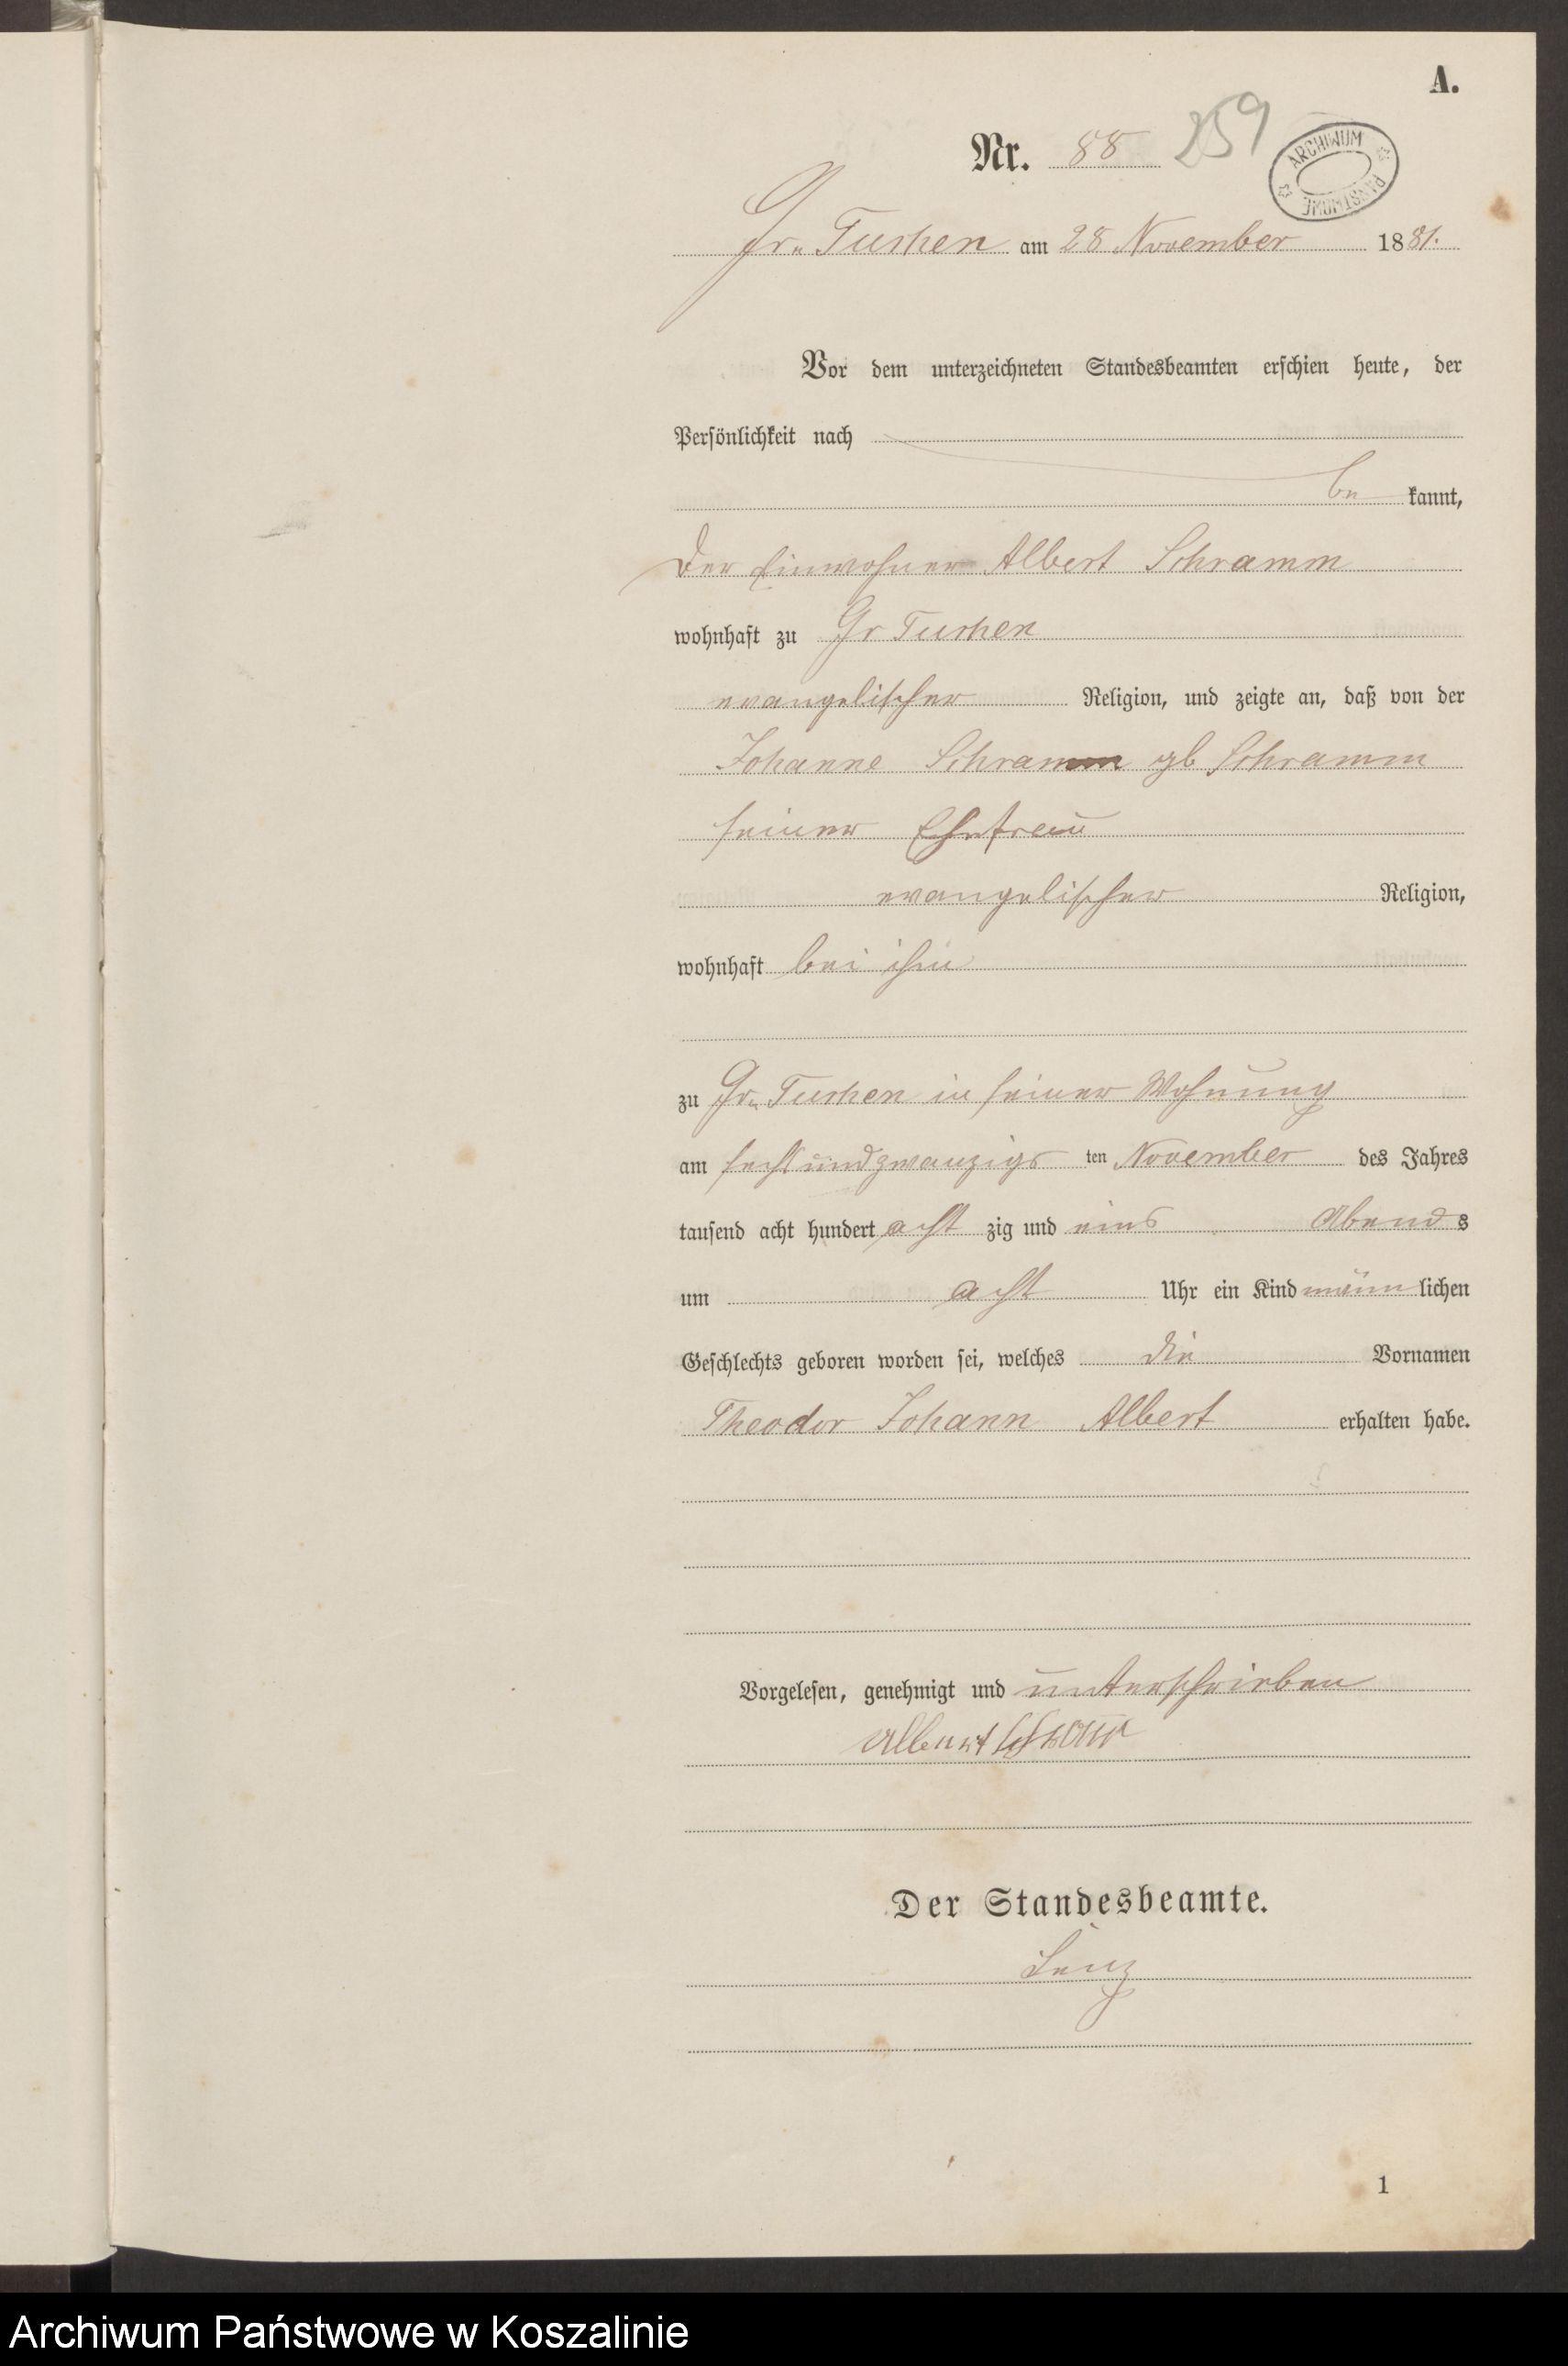 A.
Nr. 88 259
ARCHIWUM PAŃSTWOWE
Gr. Tuchen am 28 November 1881.
Vor dem unterzeichneten Standesbeamten erschien heute, der
Persönlichkeit nach
be kannt,
Der Einwohner Albert Schramm
wohnhaft zu Gr Tuchen
evangelischer Religion, und zeigte an, daß von der
Johanne Schramm gb Schramm
seiner Ehefrau
evangelischer Religion,
wohnhaft bei ihm
zu Gr. Tuchen in seiner Wohnung
am sechsundzwanzigs ten November des Jahres
tausend acht hundert acht zig und eins Abends
um acht Uhr ein Kind männlichen
Geschlechts geboren worden sei, welches die Vornamen
Theodor Johann Albert erhalten habe.
Vorgelesen, genehmigt und unterschrieben
Albert Schramm
Der Standesbeamte.
Lenz
1
Archiwum Państwowe w Koszalinie